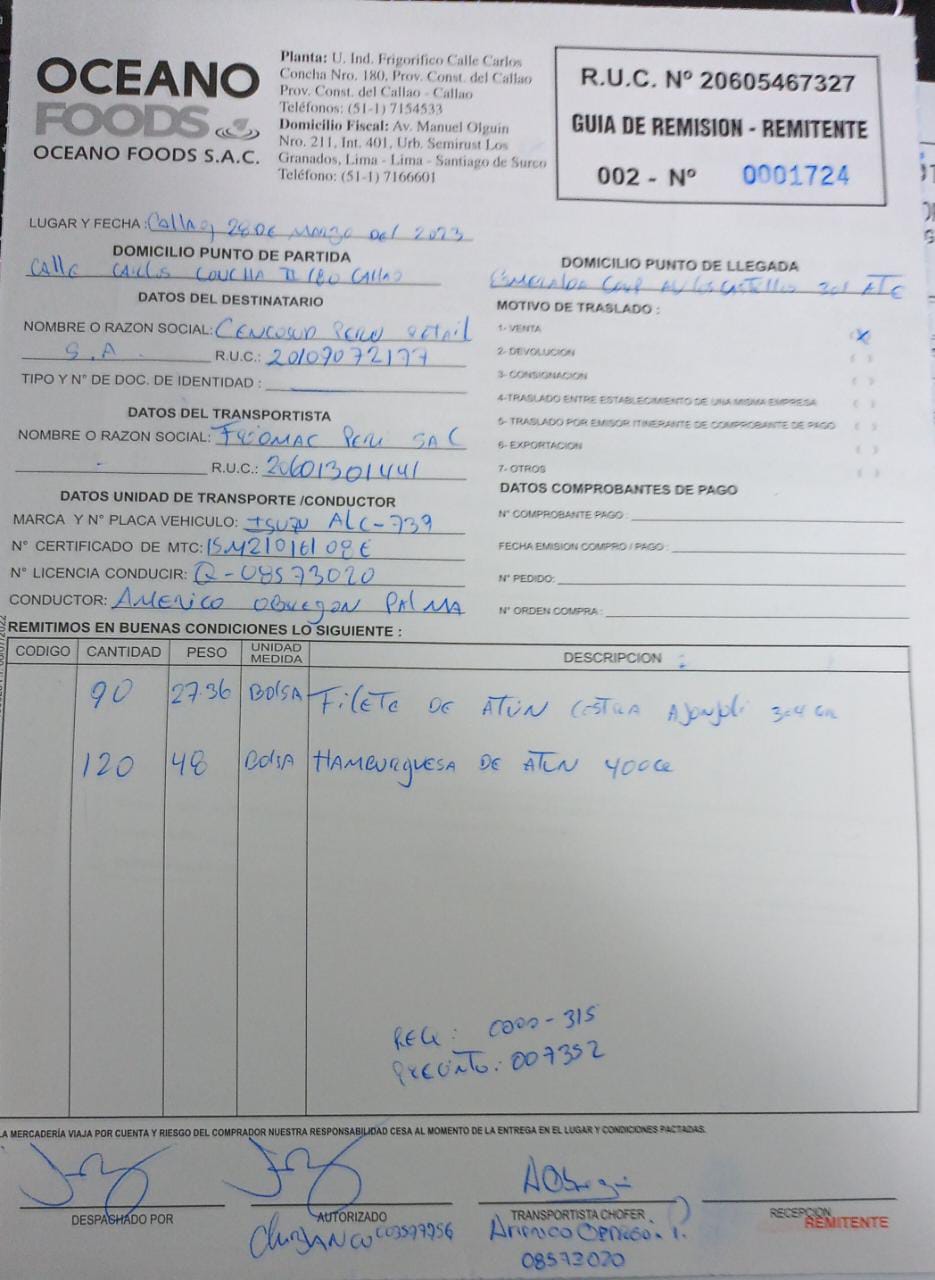 OCEANO
FOODS
OCEANO FOODS S.A.C.
Planta: U. Ind. Frigorifico Calle Carlos
Concha Nro. 180, Prov. Const. del Callao
Prov. Const. del Callao - Callao
Teléfonos: (51-1) 7154533
Domicilio Fiscal: Av. Manuel Olguin
Nro. 211, Int. 401, Urb. Semirust Los
Granados, Lima - Lima - Santiago de Surco
Teléfono: (51-1) 7166601
R.U.C. Nº 20605467327
GUIA DE REMISION - REMITENTE
002 - Nº 0001724
LUGAR Y FECHA: Callao, 28 DE Marzo Del 2023
DOMICILIO PUNTO DE PARTIDA
Calle Carlos Concha 180 Callao
DOMICILIO PUNTO DE LLEGADA
Esmeralda Corp Av Los Castillo 301 ATE
DATOS DEL DESTINATARIO
NOMBRE O RAZON SOCIAL: Cencosud Peru Retail
S.A. R.U.C.: 20109072177
TIPO Y N° DE DOC. DE IDENTIDAD :
MOTIVO DE TRASLADO :
1- VENTA (X)
2- DEVOLUCION ( )
3- CONSIGNACION ( )
4-TRASLADO ENTRE ESTABLECIMIENTO DE UNA MISMA EMPRESA ( )
5- TRASLADO POR EMISOR ITINERANTE DE COMPROBANTE DE PAGO ( )
6- EXPORTACION ( )
7- OTROS ( )
DATOS DEL TRANSPORTISTA
NOMBRE O RAZON SOCIAL: FRIOMAC Peru SAC
- R.U.C.: 20601301441
DATOS UNIDAD DE TRANSPORTE /CONDUCTOR
MARCA Y N° PLACA VEHICULO: ISUZU ALC-739
N° CERTIFICADO DE MTC: 15M21016108E
N° LICENCIA CONDUCIR: Q-08573020
CONDUCTOR: AMERICO OBREGON PALMA
DATOS COMPROBANTES DE PAGO
N° COMPROBANTE PAGO :
FECHA EMISION COMPRO / PAGO :
N° PEDIDO:
N° ORDEN COMPRA :
REMITIMOS EN BUENAS CONDICIONES LO SIGUIENTE :
CODIGO CANTIDAD PESO UNIDAD MEDIDA DESCRIPCION
90 27.36 Bolsa Filete DE ATUN COSTRA Ajonjoli 304 GR
120 48 Bolsa HAMBURGUESA DE ATUN 400GR
PRECINTO: 007352
LA MERCADERÍA VIAJA POR CUENTA Y RIESGO DEL COMPRADOR NUESTRA RESPONSABILIDAD CESA AL MOMENTO DE LA ENTREGA EN EL LUGAR Y CONDICIONES PACTADAS.
DESPACHADO POR
AUTORIZADO
TRANSPORTISTA CHOFER
Americo Obregon P.
08573020
RECEPCION
REMITENTE